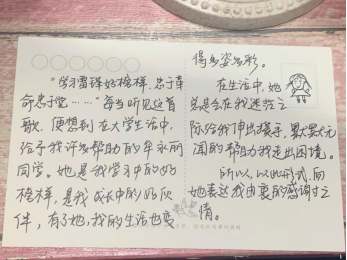 “学习雷锋好榜样，忠于革
命忠于党……”每当听见这首
歌，便想到在大学生活中，
给予我许多帮助的牟永丽
同学。她是我学习中的好
榜样，是我成长中的好伙
伴，有了她，我的生活也变
得多姿多彩。
在生活中，她
总是会在我迷茫之
际给我伸出援手，默默无
闻的帮助我走出困境。
所以，以此形式，向
她表达我由衷的感谢之
情。